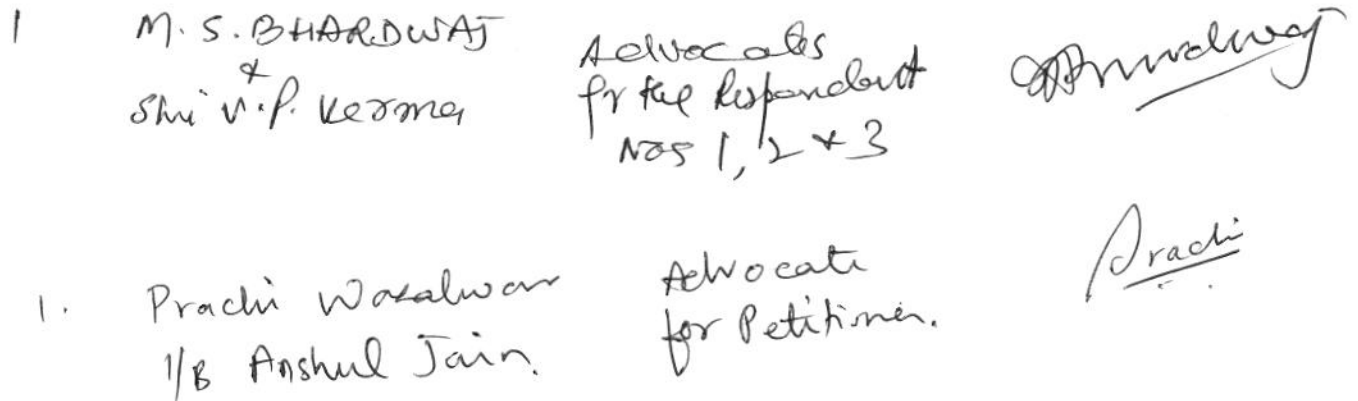 1 M. S. BHARDWAJ
&
Shri V. P. Verma
Advocates
for the Respondent
Nos 1, 2 & 3
Bhardwaj
1. Prachi Wazalwar
I/B Anshul Jain.
Advocate
for Petitioner.
Prachi